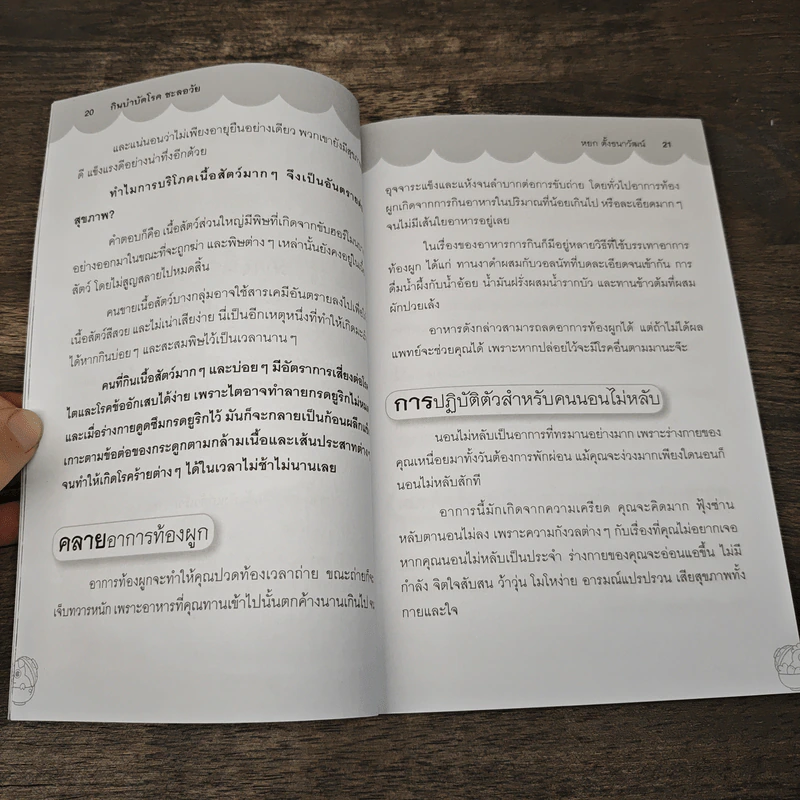 20 กินบำบัดโรค ชะลอวัย
และแน่นอนว่าไม่เพียงอายุยืนอย่างเดียว พวกเขายังมี
ดี แข็งแรงดีอย่างน่าทึ่งอีกด้วย
ทำไมการบริโภคเนื้อสัตว์มากๆ จึงเป็นอันตราย
สุขภาพ?
คำตอบก็คือ เนื้อสัตว์ส่วนใหญ่มีพิษที่เกิดจากขับฮอร์โมน
อย่างออกมาในขณะที่จะถูกฆ่า และพิษต่างๆ เหล่านั้นยังคงอยู่ใน
สัตว์ โดยไม่สูญสลายไปหมดสิ้น
คนขายเนื้อสัตว์บางกลุ่มอาจใช้สารเคมีอันตรายลงไป
เนื้อสัตว์สีสวย และไม่เน่าเสียง่าย นี่เป็นอีกเหตุหนึ่งที่ทำให้เกิด
ได้หากกินบ่อยๆ และสะสมพิษไว้เป็นเวลานานๆ
คนที่กินเนื้อสัตว์มากๆ และบ่อยๆ มีอัตราการเสี่ยงต่อ
ไตและโรคข้ออักเสบได้ง่าย เพราะไตอาจทำลายกรดยูริกไม่
และเมื่อร่างกายดูดซึมกรดยูริกไว้ มันก็จะกลายเป็นก้อนผลึก
เกาะตามข้อต่อของกระดูกตามกล้ามเนื้อและเส้นประสาทต่าง
จนทำให้เกิดโรคร้ายต่างๆ ได้ในเวลาไม่ช้าไม่นานเลย
คลายอาการท้องผูก
อาการท้องผูกจะทำให้คุณปวดท้องเวลาถ่าย ขณะถ่ายก็
เจ็บทวารหนัก เพราะอาหารที่คุณทานเข้าไปนั้นตกค้างนานเกินไป
หยก ตั้งธนาวัฒน์ 21
อุจจาระแข็งและแห้งจนลำบากต่อการขับถ่าย โดยทั่วไปอาการท้อง
ผูกเกิดจากการกินอาหารในปริมาณที่น้อยเกินไป หรือละเอียดมากๆ
จนไม่มีเส้นใยอาหารอยู่เลย
ในเรื่องของอาหารการกินก็มีอยู่หลายวิธีที่ใช้บรรเทาอาการ
ท้องผูก ได้แก่ ทานงาดำผสมกับวอลนัทที่บดละเอียดจนเข้ากัน การ
ดื่มน้ำผึ้งกับน้ำอ้อย น้ำมันฝรั่งผสมน้ำรากบัว และทานข้าวต้มที่ผสม
ผักปวยเล้ง
อาหารดังกล่าวสามารถลดอาการท้องผูกได้ แต่ถ้าไม่ได้ผล
แพทย์จะช่วยคุณได้ เพราะหากปล่อยไว้จะมีโรคอื่นตามมานะจ๊ะ
การปฏิบัติตัวสำหรับคนนอนไม่หลับ
นอนไม่หลับเป็นอาการที่ทรมานอย่างมาก เพราะร่างกายของ
คุณเหนื่อยมาทั้งวันต้องการพักผ่อน แม้คุณจะง่วงมากเพียงใดนอนก็
นอนไม่หลับสักที
อาการนี้มักเกิดจากความเครียด คุณจะคิดมาก ฟุ้งซ่าน
หลับตานอนไม่ลง เพราะความกังวลต่างๆ กับเรื่องที่คุณไม่อยากเจอ
หากคุณนอนไม่หลับเป็นประจำ ร่างกายของคุณจะอ่อนแอขึ้น ไม่มี
กำลัง จิตใจสับสน ว้าวุ่น โมโหง่าย อารมณ์แปรปรวน เสียสุขภาพทั้ง
กายและใจ